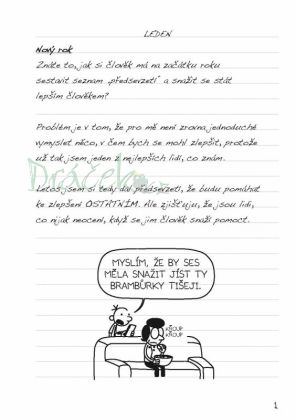 LEDEN
Nový rok
Znáte to, jak si člověk má na začátku roku
sestavit seznam „předsevzetí“ a snažit se stát
lepším člověkem?
Problém je v tom, že pro mě není zrovna jednoduché
vymyslet něco, v čem bych se mohl zlepšit, protože
už tak jsem jeden z nejlepších lidí, co znám.
Letos jsem si tedy dal předsevzetí, že budu pomáhat
ke zlepšení OSTATNÍM. Ale zjišťuju, že jsou lidi,
co nijak neocení, když se jim člověk snaží pomoct.
MYSLÍM, ŽE BY SES
MĚLA SNAŽIT JÍST TY
BRAMBŮRKY TIŠEJI.
KŘOUP
KŘOUP
1